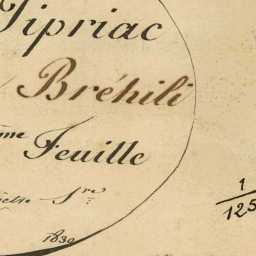 Tipriac
Bréhili
me Feuille
Sre
1830
1
125